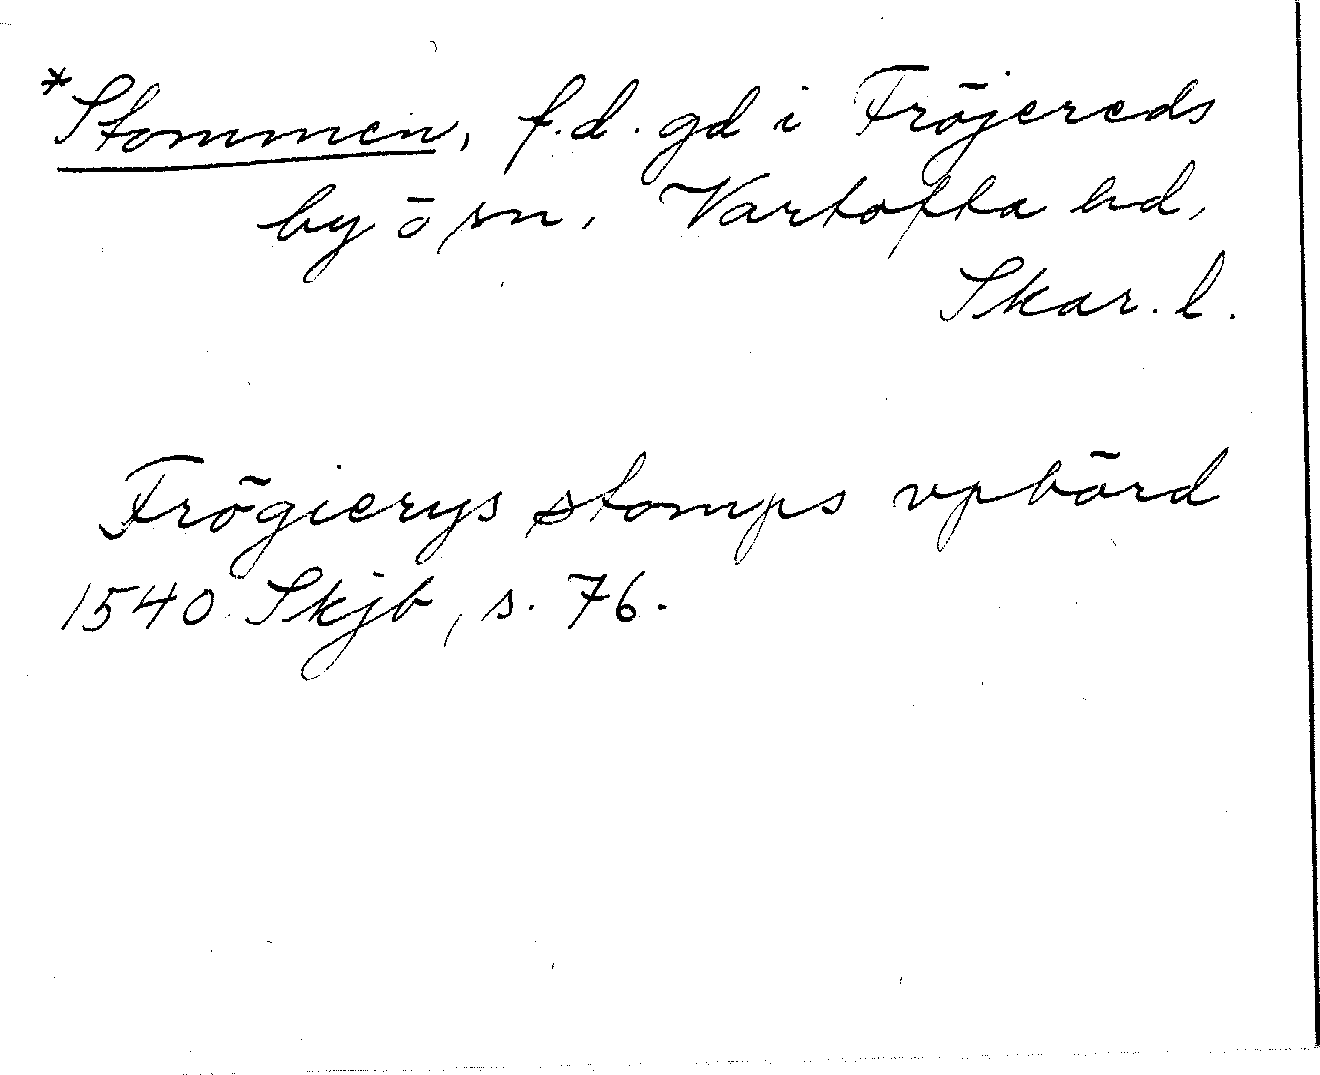 *Stommen, f.d. gd i Fröjereds
by ö sn, Vartofta hd,
Skar. l.
Frögierys stomps vpbörd
1540 Skjb, s. 76.